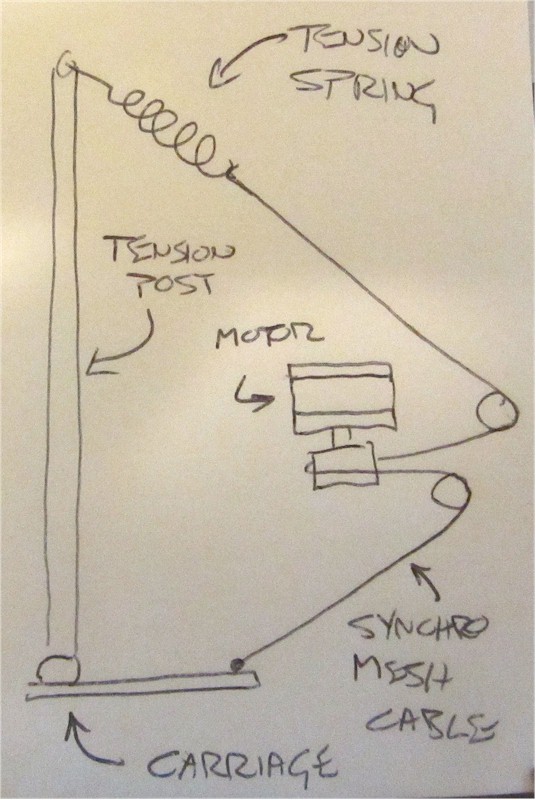 TENSION
SPRING
TENSION
POST
MOTOR
SYNCHRO
MESH
CABLE
CARRIAGE